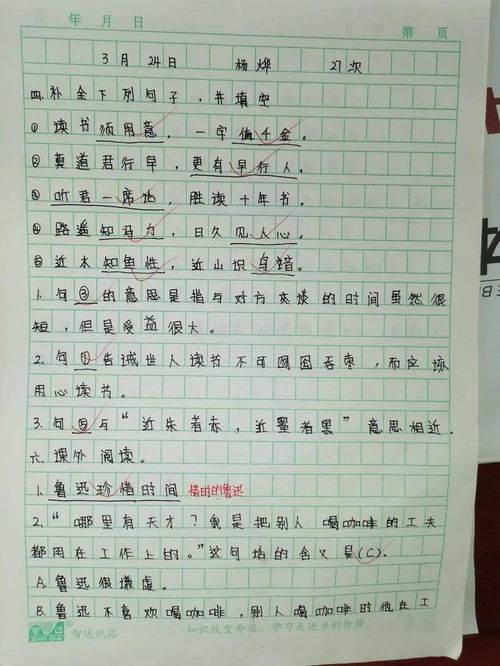 年 月 日 第 页
3月 24日 杨烨 27次
四.补全下列句子,并填空
① 读书须用意,一字值千金。
② 莫道君行早,更有早行人。
③ 听君一席话,胜读十年书。
④ 路遥知马力,日久见人心。
⑤ 近水知鱼性,近山识鸟音。
1.句③的意思是指与对方交谈的时间虽然很
短,但是受益很大。
2.句①告诫世人读书不可囫囵吞枣,而应该
用心读书。
3.句⑤与“近朱者赤,近墨者黑”意思相近.
六.课外阅读。
1.鲁迅珍惜时间 惜时的鲁迅
2.“哪里有天才?我是把别人喝咖啡的工夫
都用在工作上的。”这句话的含义是(C).
A.鲁迅很谦虚。
B.鲁迅不喜欢喝咖啡,别人喝咖啡时他在工
智达 ZHI DA 智达纸品 知识改变命运,学习是进步的阶梯.